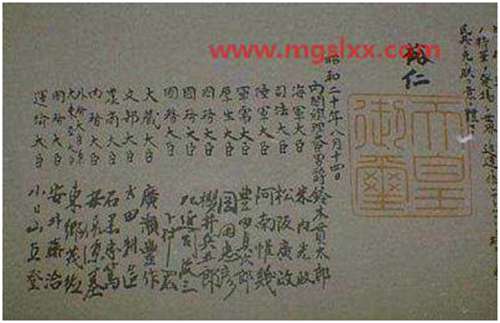 www.mgslxx.com
裕仁
天皇
御璽
昭和二十年八月十四日
內閣總理大臣男爵鈴木貫太郎
海軍大臣 米內光政
司法大臣 松阪廣政
陸軍大臣 阿南惟幾
軍需大臣 豐田貞次郎
厚生大臣 岡田忠彥
國務大臣 櫻井兵五郎
國務大臣 左近司政三
國務大臣 下村宏
大藏大臣 廣瀨豐作
文部大臣 太田耕造
農商大臣 石黑忠篤
內務大臣
外務大臣
大東亞大臣 東鄉茂德
國務大臣 安井藤治
運輸大臣 小日山直登